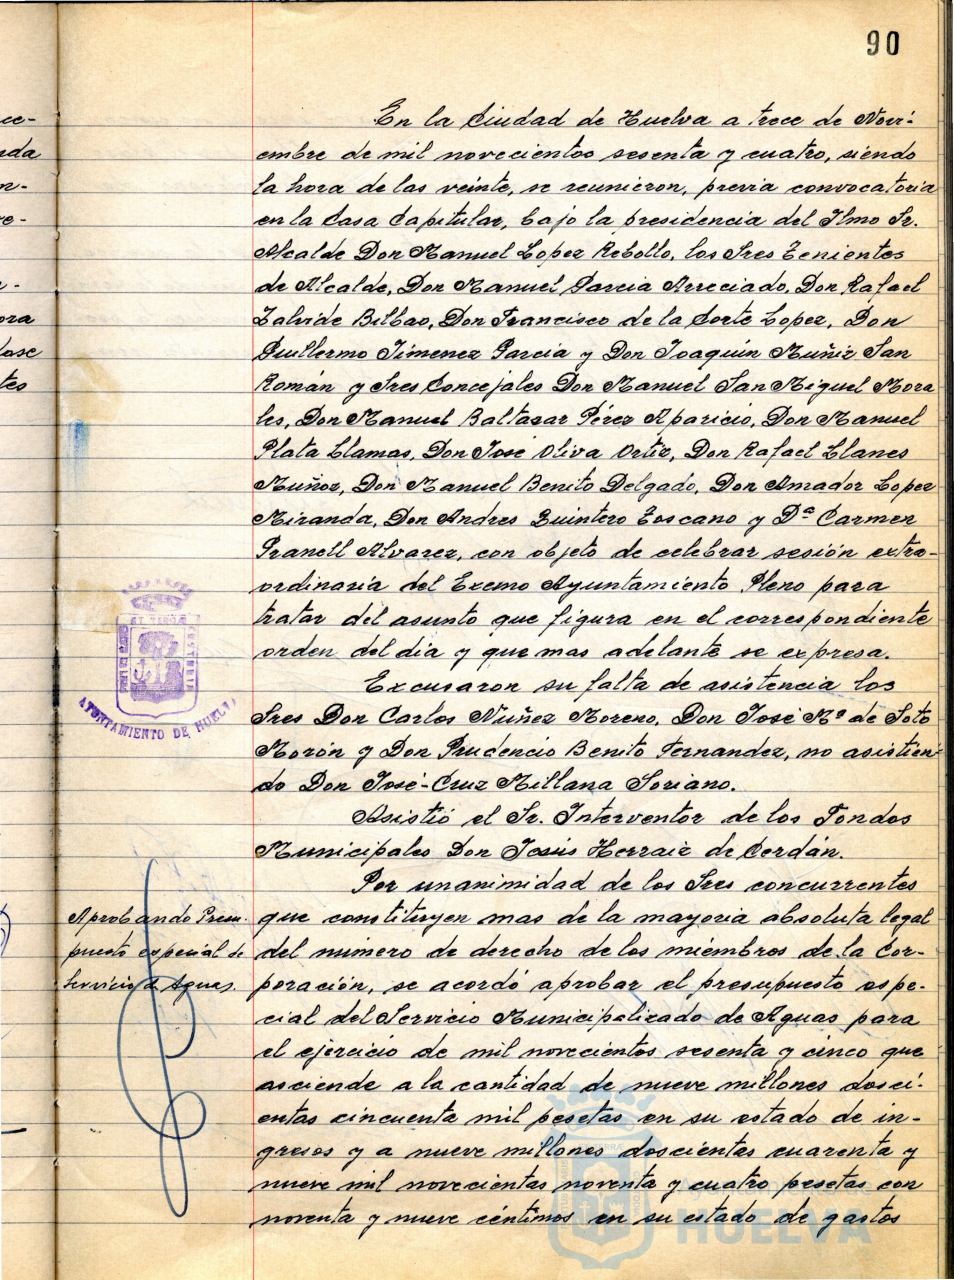 90
ce-
nda
n-
re-
a-
ora
lose
tes
En la Ciudad de Huelva a trece de Novi-
embre de mil novecientos sesenta y cuatro, siendo
la hora de las veinte, se reunieron, previa convocatoria
en la Casa Capitular, bajo la presidencia del Ilmo Sr.
Alcalde Don Manuel Lopez Rebollo, los Sres Tenientes
de Alcalde, Don Manuel Garcia Arreciado, Don Rafael
Zalvide Bilbao, Don Francisco de la Corte Lopez, Don
Guillermo Jimenez Garcia y Don Joaquín Muñiz San
Román y Sres Concejales Don Manuel San Miguel Mora
les, Don Manuel Baltasar Pérez Aparicio, Don Manuel
Plata Llamas, Don José Oliva Ortiz, Don Rafael Llanes
Muñoz, Don Manuel Benito Delgado, Don Amador Lopez
Miranda, Don Andres Quintero Toscano y Dª Carmen
Granell Alvarez, con objeto de celebrar sesión extra-
ordinaria del Excmo Ayuntamiento Pleno para
tratar del asunto que figura en el correspondiente
orden del día y que mas adelante se expresa.
Excusaron su falta de asistencia los
Sres Don Carlos Núñez Moreno, Don José Mª de Soto
Morón y Don Prudencio Benito Fernandez, no asistien-
do Don José-Cruz Millana Soriano.
Asistió el Sr. Interventor de los Fondos
Municipales Don Jesús Herraiz de Cerdán.
Por unanimidad de los Sres concurrentes
que constituyen mas de la mayoria absoluta legal
del número de derecho de los miembros de la Cor-
poración, se acordó aprobar el presupuesto espe-
cial del Servicio Municipalizado de Aguas para
el ejercicio de mil novecientos sesenta y cinco que
asciende a la cantidad de nueve millones dosci-
entas cincuenta mil pesetas en su estado de in-
gresos y a nueve millones doscientas cuarenta y
nueve mil novecientas noventa y cuatro pesetas con
noventa y nueve céntimos en su estado de gastos
AYUNTAMIENTO DE HUELVA
Aprobando Presu-
puesto especial de
Servicio de Aguas.
HUELVA